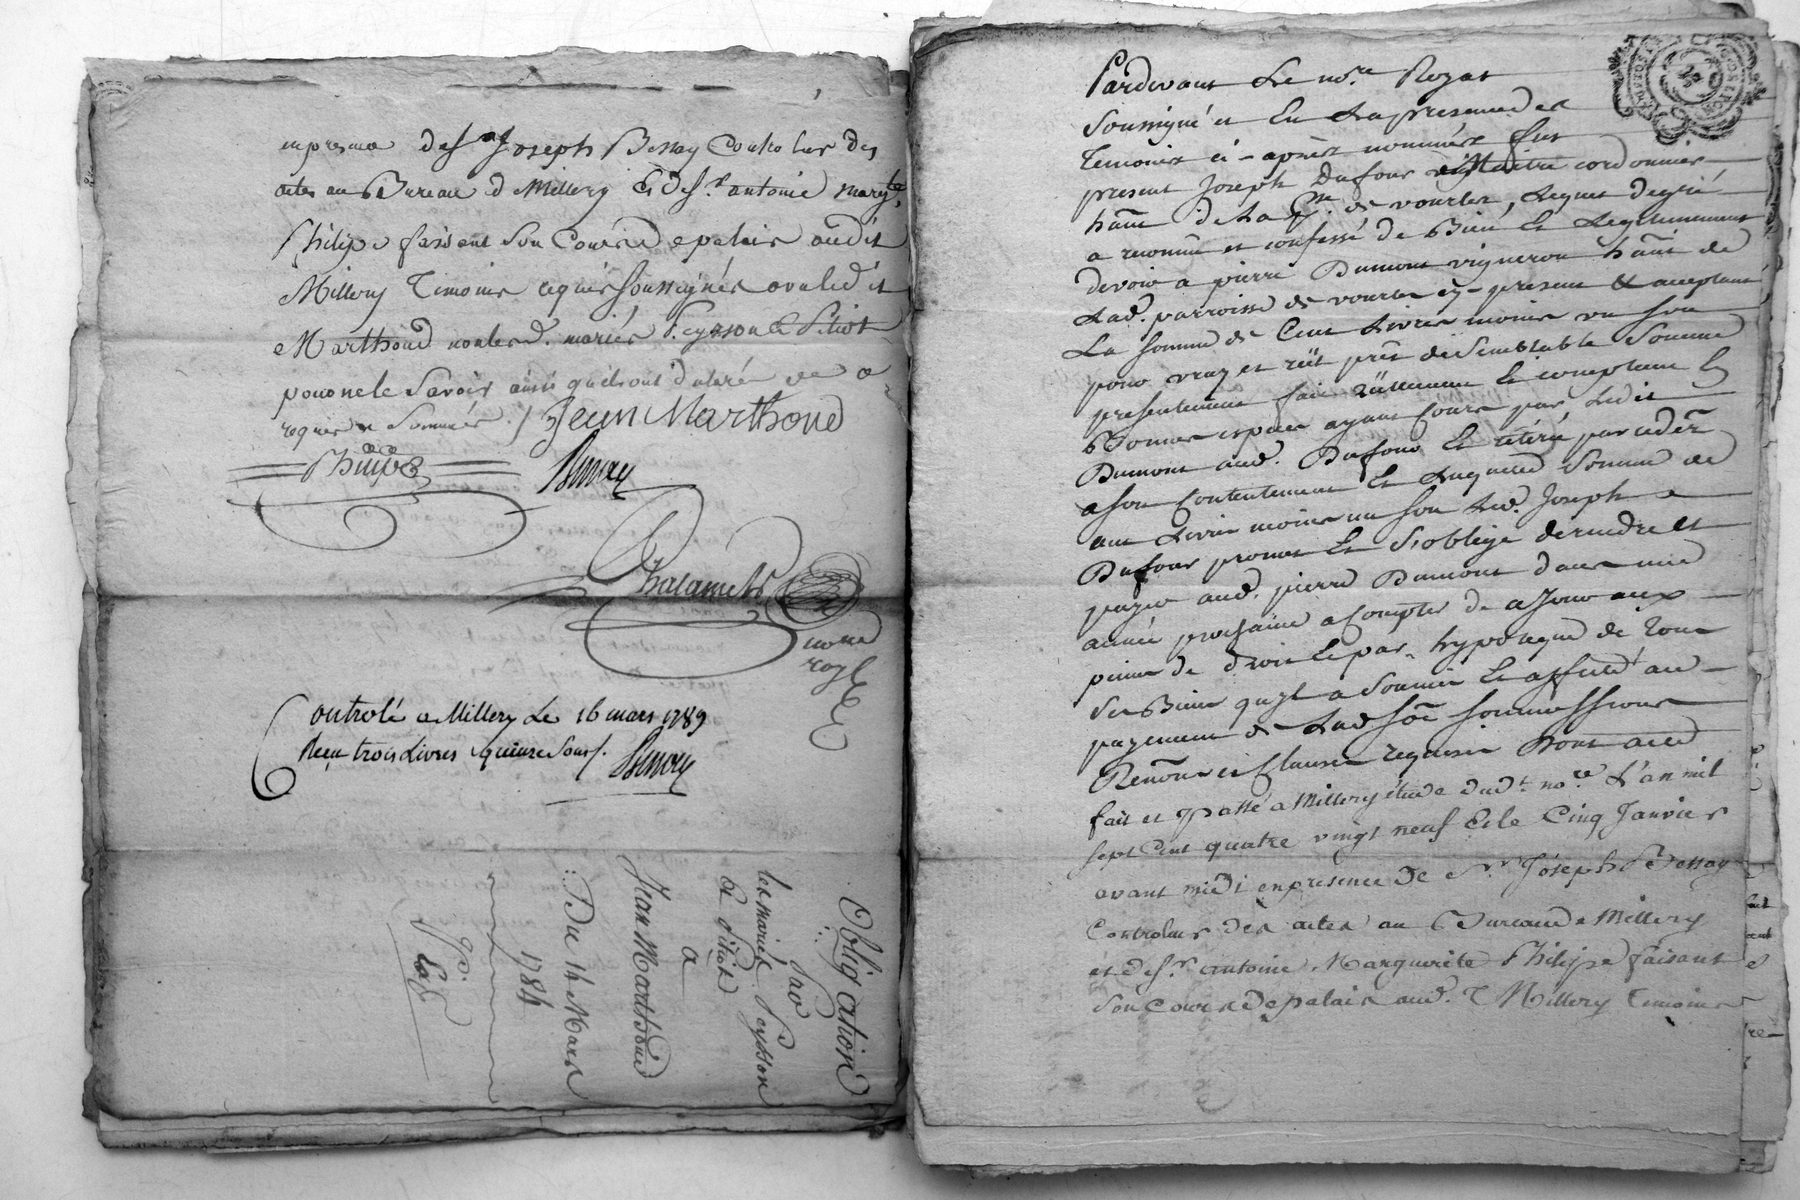 en presence de sr Joseph Bessay Controleur des
actes au Bureau de Millery Et de sr. antoine margte.
Philipe faisant son Cours de palais audit
Millery Temoins requis soussignés avec ledit
Marthoud non lesd. mariés Peysson et Pitiot
pour ne le savoir ainsi qu'ils ont declaré de ce
requis et sommés ./. Jean Marthoud
Philipe Bessay
Chalamel
nore
royl
Controlé a Millery Le 16 mars 1789
Reçu trois Livres quinze Sous ./. Bessay
Obligation
par
les mariés Peysson
et Pitiot
a
Jean Marthoud
Du 14 Mars
1784
gro.
Pardevant Le nore. Royal
soussigné et En La presence des
Temoins ci-après nommés fut
present Joseph Dufour Maitre cordonnier
hant de La psse. de vourles, Lequel de gré
a reconnu et confessé de Bien Et Legitimement
devoir a pierre Dumont vigneron hant de
Lad. parroisse de vourles cy-present & acceptant
La somme de Cent Livres moins un sou
pour vray et réel prêt de semblable somme
presentement fait réellement Et comptant En
Bonnes especes ayant Cours par Ledit
Dumont aud. Dufour Et retiré par ce der.
a son Contentement Et Laquelle somme de
cent Livres moins un sou Led. Joseph
Dufour promet Et S'oblige de rendre et
payer aud. pierre Dumont dans une
année prochaine a Compter de ce Jour aux
peines de droit Et par hypoteque de Tous
ses Biens qu'il a soumis Et affecté au
payement de Lad. soe. soumissions
Renons et Clauses requises Dont acte
fait et Passé a Millery étude dudt. nore. L'an mil
sept Cent quatre vingt neuf Et le Cinq Janvier
avant midi en presence de Sr. Joseph Bessay
Controleur des actes au Bureau de Millery
et de sr. antoine Marguerite Philipe faisant
son Cours de palais aud. Millery Temoins